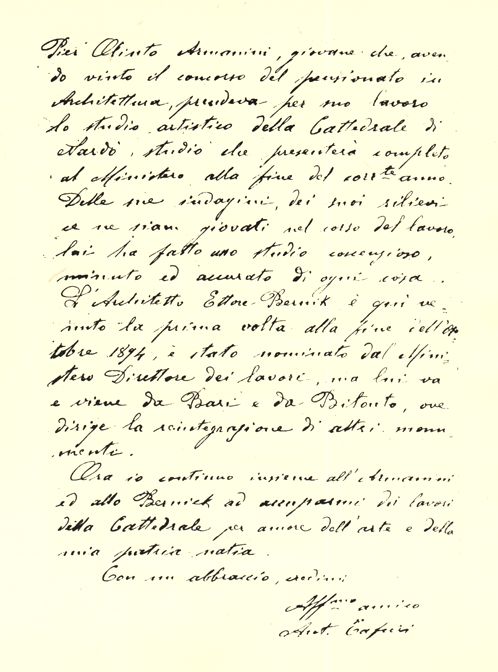 Pier Olinto Armanini, giovane che, aven
do vinto il concorso del pensionato in
Architettura, prendeva per suo lavoro
lo studio artistico della Cattedrale di
Nardò, studio che presenterà completo
al Ministero alla fine del corr.te anno.
Delle sue indagini, dei suoi rilievi
ce ne siam giovati nel corso del lavoro,
lui ha fatto uno studio coscenzioso,
minuto ed accurato di ogni cosa.
L'Architetto Ettore Bernik è qui ve-
nuto la prima volta alla fine dell'Ot-
tobre 1894, è stato nominato dal Mini-
stero Direttore dei lavori, ma lui va
e viene da Bari e da Bitonto, ove
dirige la reintegrazione di altri monu-
menti.
Ora io continuo insieme all'Armanini
ed allo Bernick ad occuparmi dei lavori
della Cattedrale per amore dell'arte e della
mia patria natia.
Con un abbraccio, credimi
Aff.mo amico
Ant. Tafuri